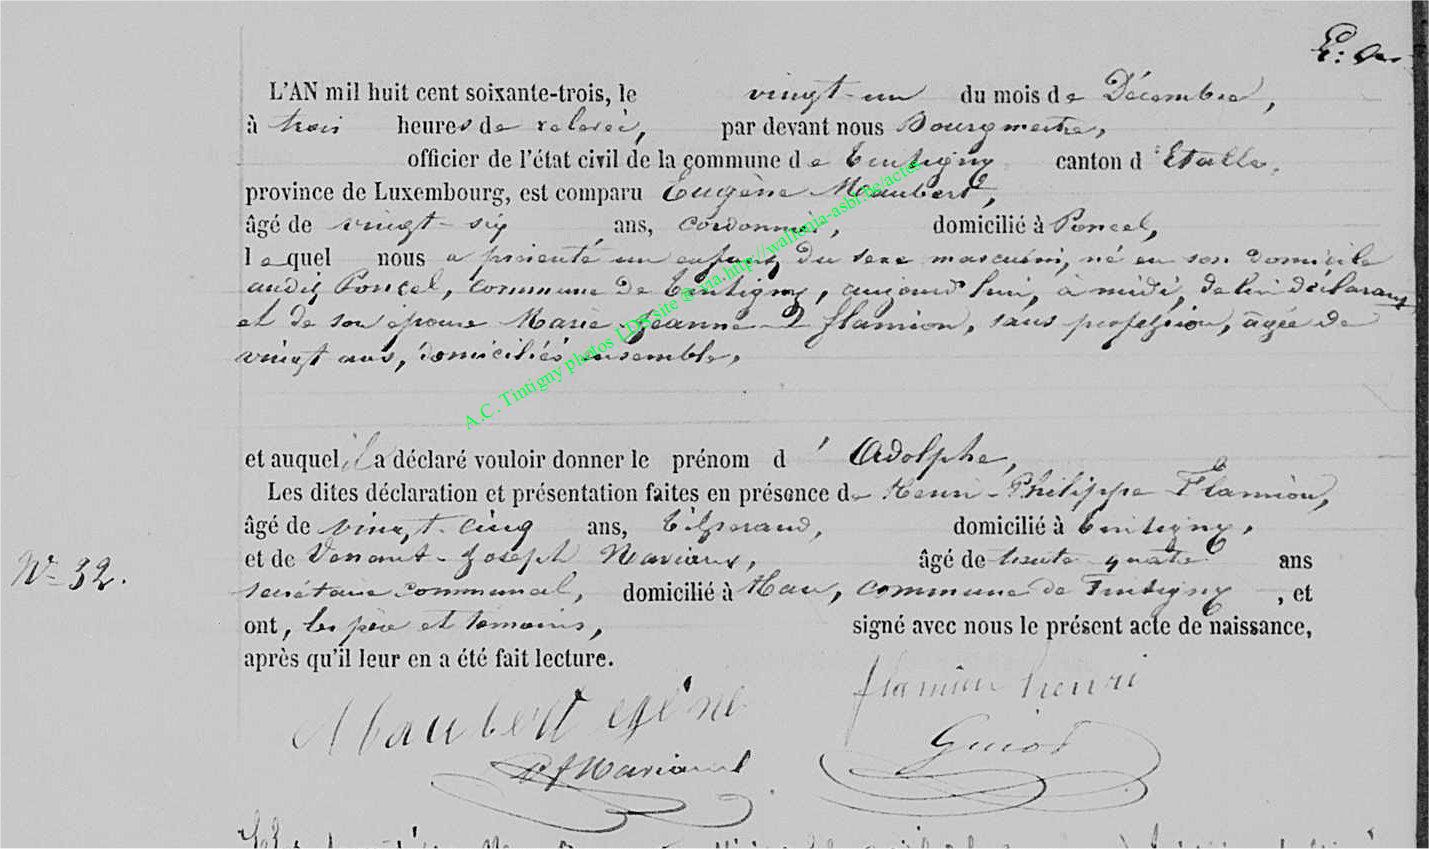 L'AN mil huit cent soixante-trois, le vingt-un du mois de Décembre,
à trois heures de relevée, par devant nous Bourgmestre,
officier de l'état civil de la commune de Tintigny canton d'Etalle,
province de Luxembourg, est comparu Eugène Maubert,
âgé de vingt-six ans, cordonnier, domicilié à Poncel,
lequel nous a présenté un enfant du sexe masculin, né en son domicile
audit Poncel, commune de Tintigny, aujourd'hui, à midi, de lui déclarant
et de son épouse Marie-Jeanne Flamion, sans profession, âgée de
vingt ans, domiciliés ensemble,
et auquel il a déclaré vouloir donner le prénom d'Adolphe,
Les dites déclaration et présentation faites en présence de Henri-Philippe Flamion,
âgé de vingt-cinq ans, Tisserand, domicilié à Tintigny,
et de Venant-Joseph âgé de trente-quatre ans
N° 32.
secrétaire communal, domicilié à Han, commune de Tintigny, et
ont, les père et témoins, signé avec nous le présent acte de naissance,
après qu'il leur en a été fait lecture.
flamion henri
Maubert egène
Guiot
A.C. Tintigny photos LDS site @ via http://wallonia-asbl.be/actes